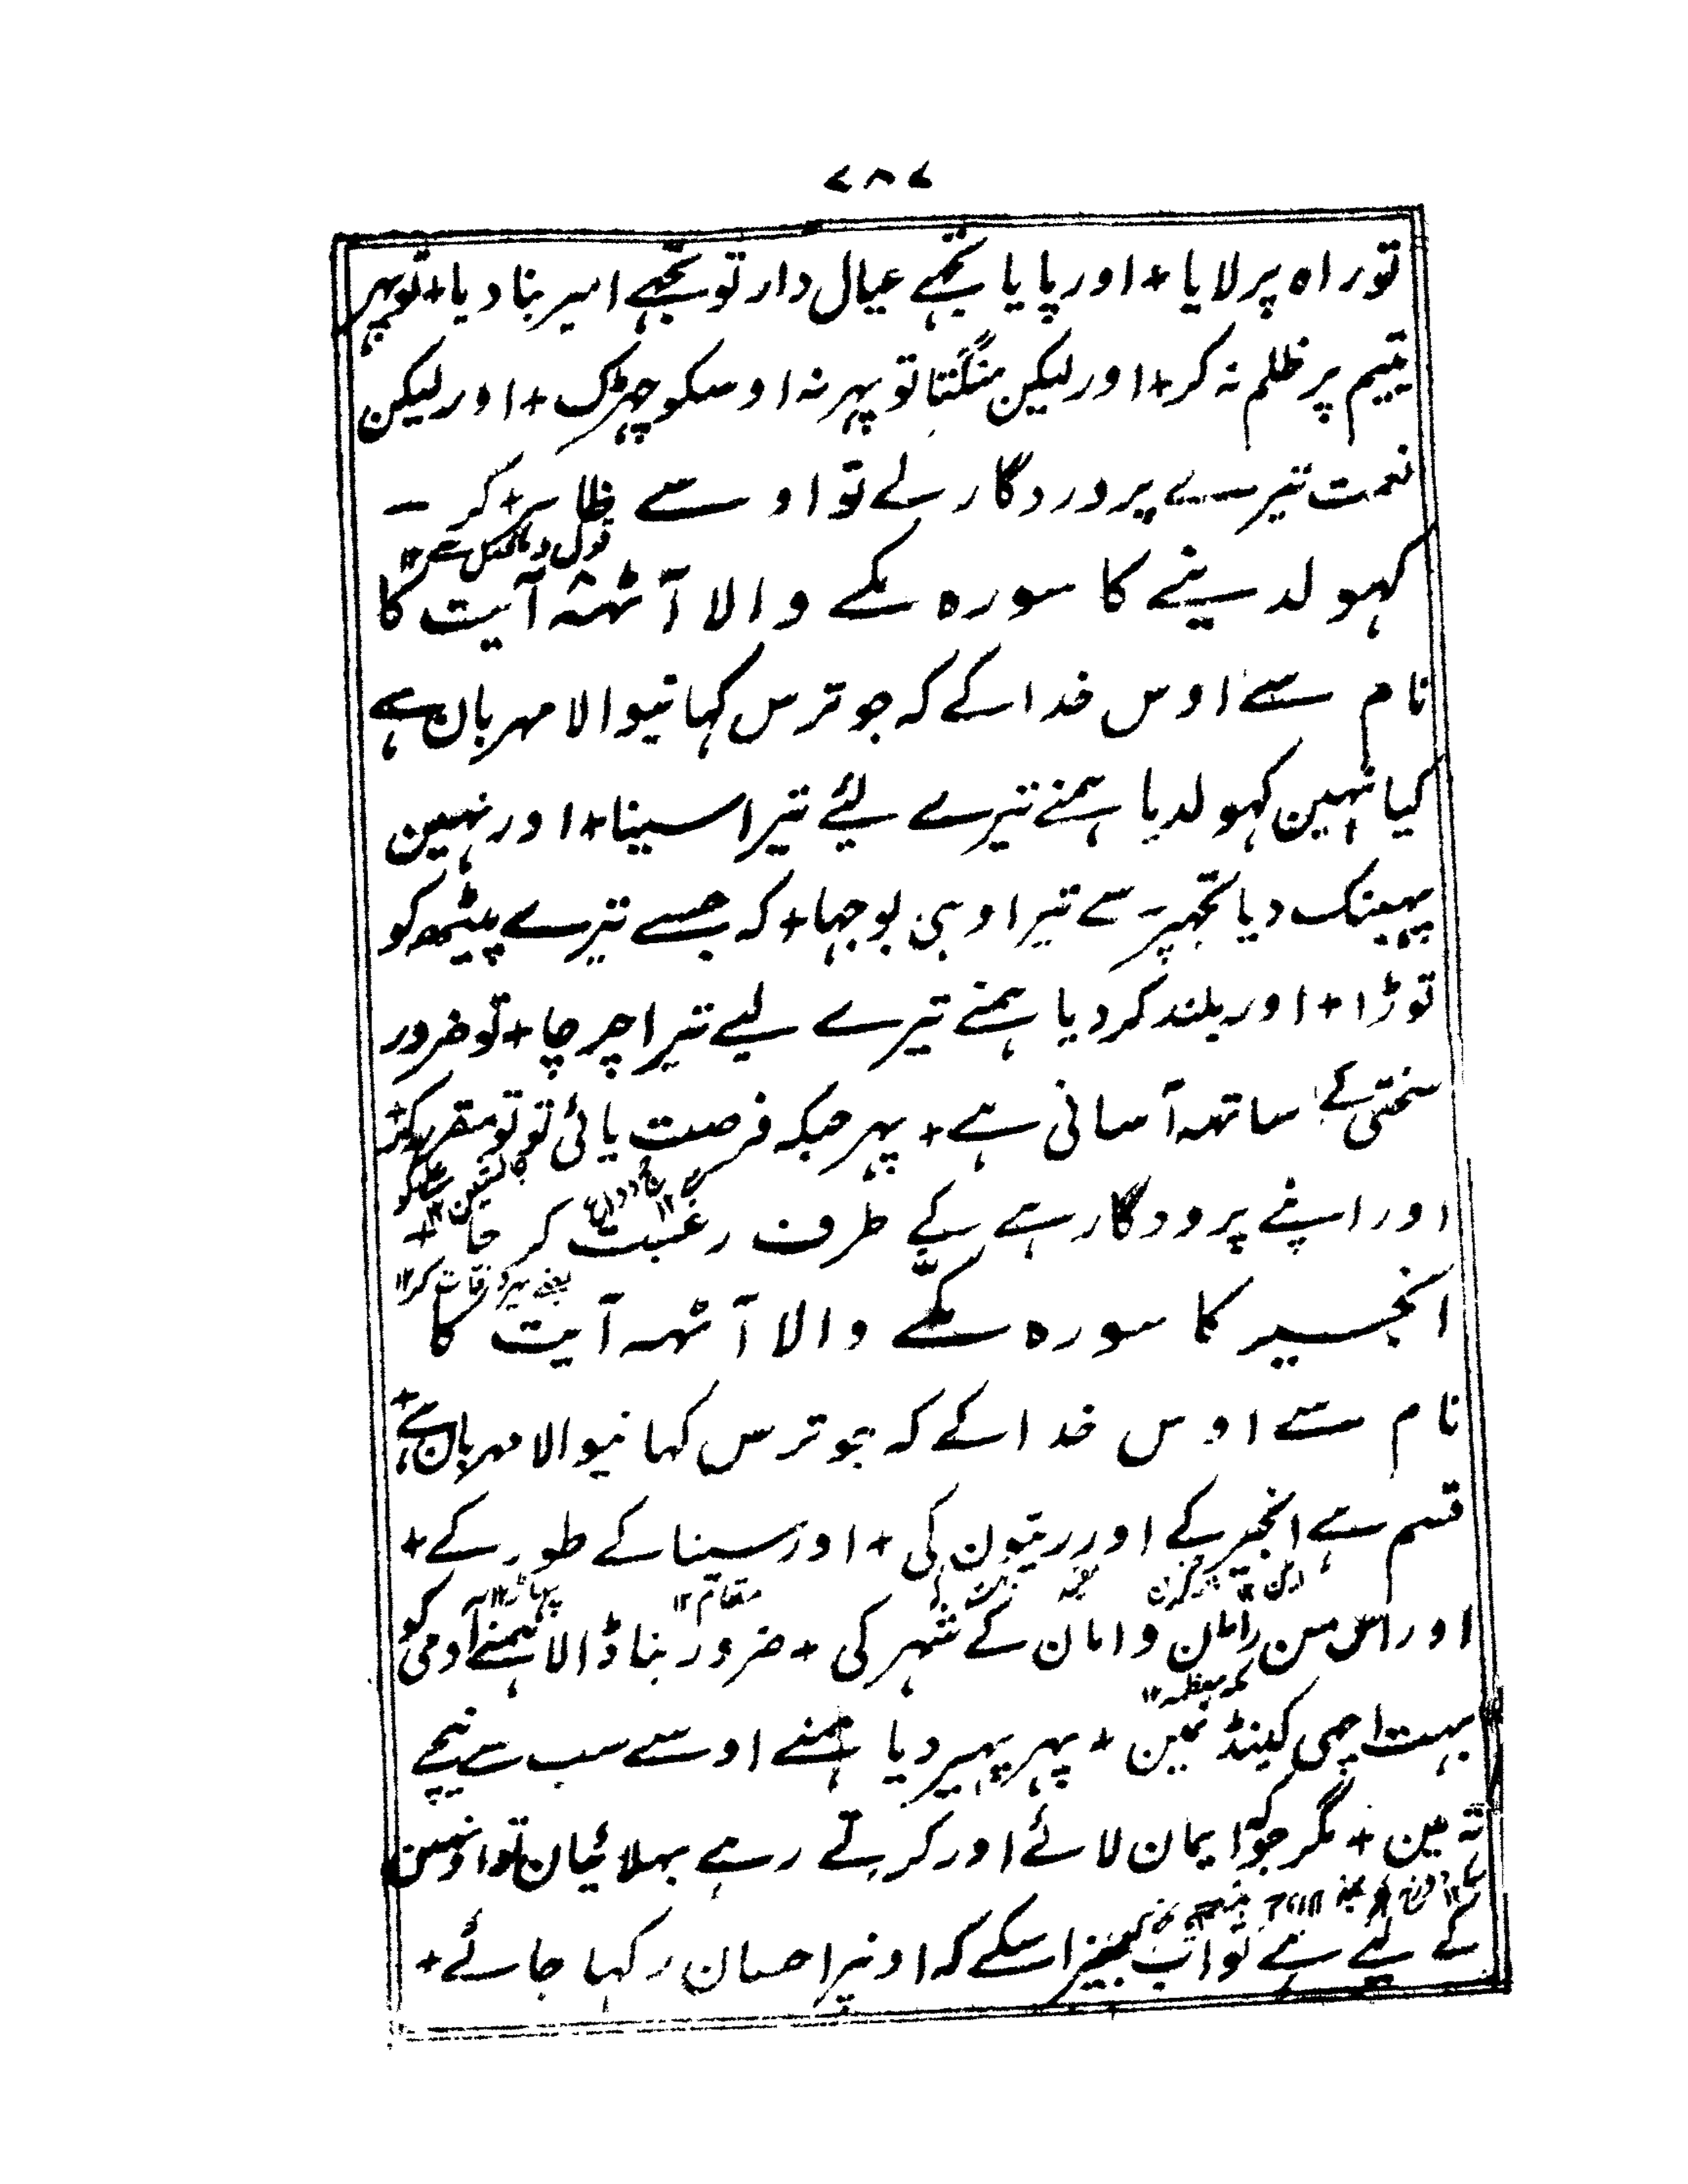 ۷۸۷
تو راہ پر لایا + اور پایا تجہے عیال دار تو تجہے امیر بنا دیا + تو پہر
یتیم پر ظلم نہ کر + اور لیکن منگتا تو پہر نہ اوسکو جہڑک + اور لیکن
نعمت تیرے پروردگار لے تو اوسے ظاہر کر —
کہولدینے کا سورہ مکے والا آٹہہ آیت کا
نام سے اوس خدا کے کہ جو ترس کہانیوالا مہربان ہے
کیا نہین کہولدیا ہمنے تیرے لئے تیرا سینا + اور نہین
پہینک دیا تجہپر سے تیرا وہی بوجہا + کہ جسے تیرے پیٹھہ کو
توڑا + اور بلند کر دیا ہمنے تیرے لیے تیرا چرچا + تو ضرور
سختی کے ساتہہ آسانی ہے + پہر جبکہ فرصت پائی تو تو مقرر کر +
اور اپنے پرودگار ہے کے طرف رغبت کر جا +
انجیر کا سورہ مکّے والا آٹہہ آیت کا
نام سے اوس خدا کے کہ جو ترس کہانیوالا مہربان ہے +
قسم ہے انجیر کے اور زیتون کی + اور سینا کے طور کے +
مقام ۱۲ پہاڑ ۱۲
اور اس امن وامان کے شہر کی + ضرور بنا ڈالا ہمنے آدمی کو
مکہ معظمہ ۱۲
بہت اچہی کینڈ مین + پہر پہیر دیا ہمنے اوسے سب سے نیچے
تہ مین + مگر جو کہ ایمان لائے اور کرتے رہے بہلائیان تو اونہین
کے لیے ہے ثواب بغیر اسکے کہ اونپر احسان رکہا جائے +